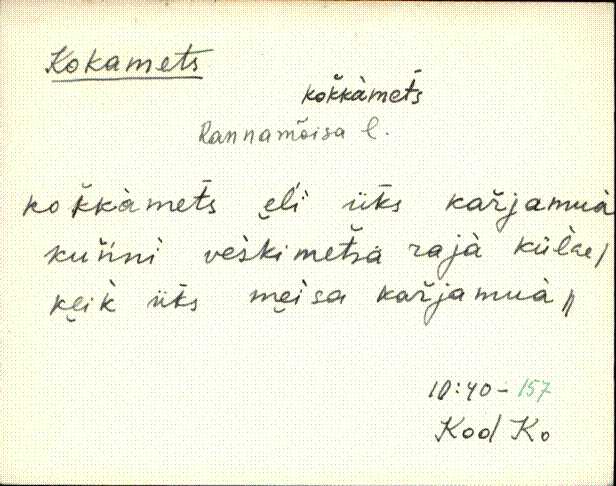 Kokamets
kok̆kàmet̆s
Rannamõisa l.
kok̆kàmet̆s ęli üks kar̆jamuà
kun̆ni vès̆kimet̆sa rajà külàe/
kęik üks męisa kar̆jamuà //
10:40-157
Kod Ko